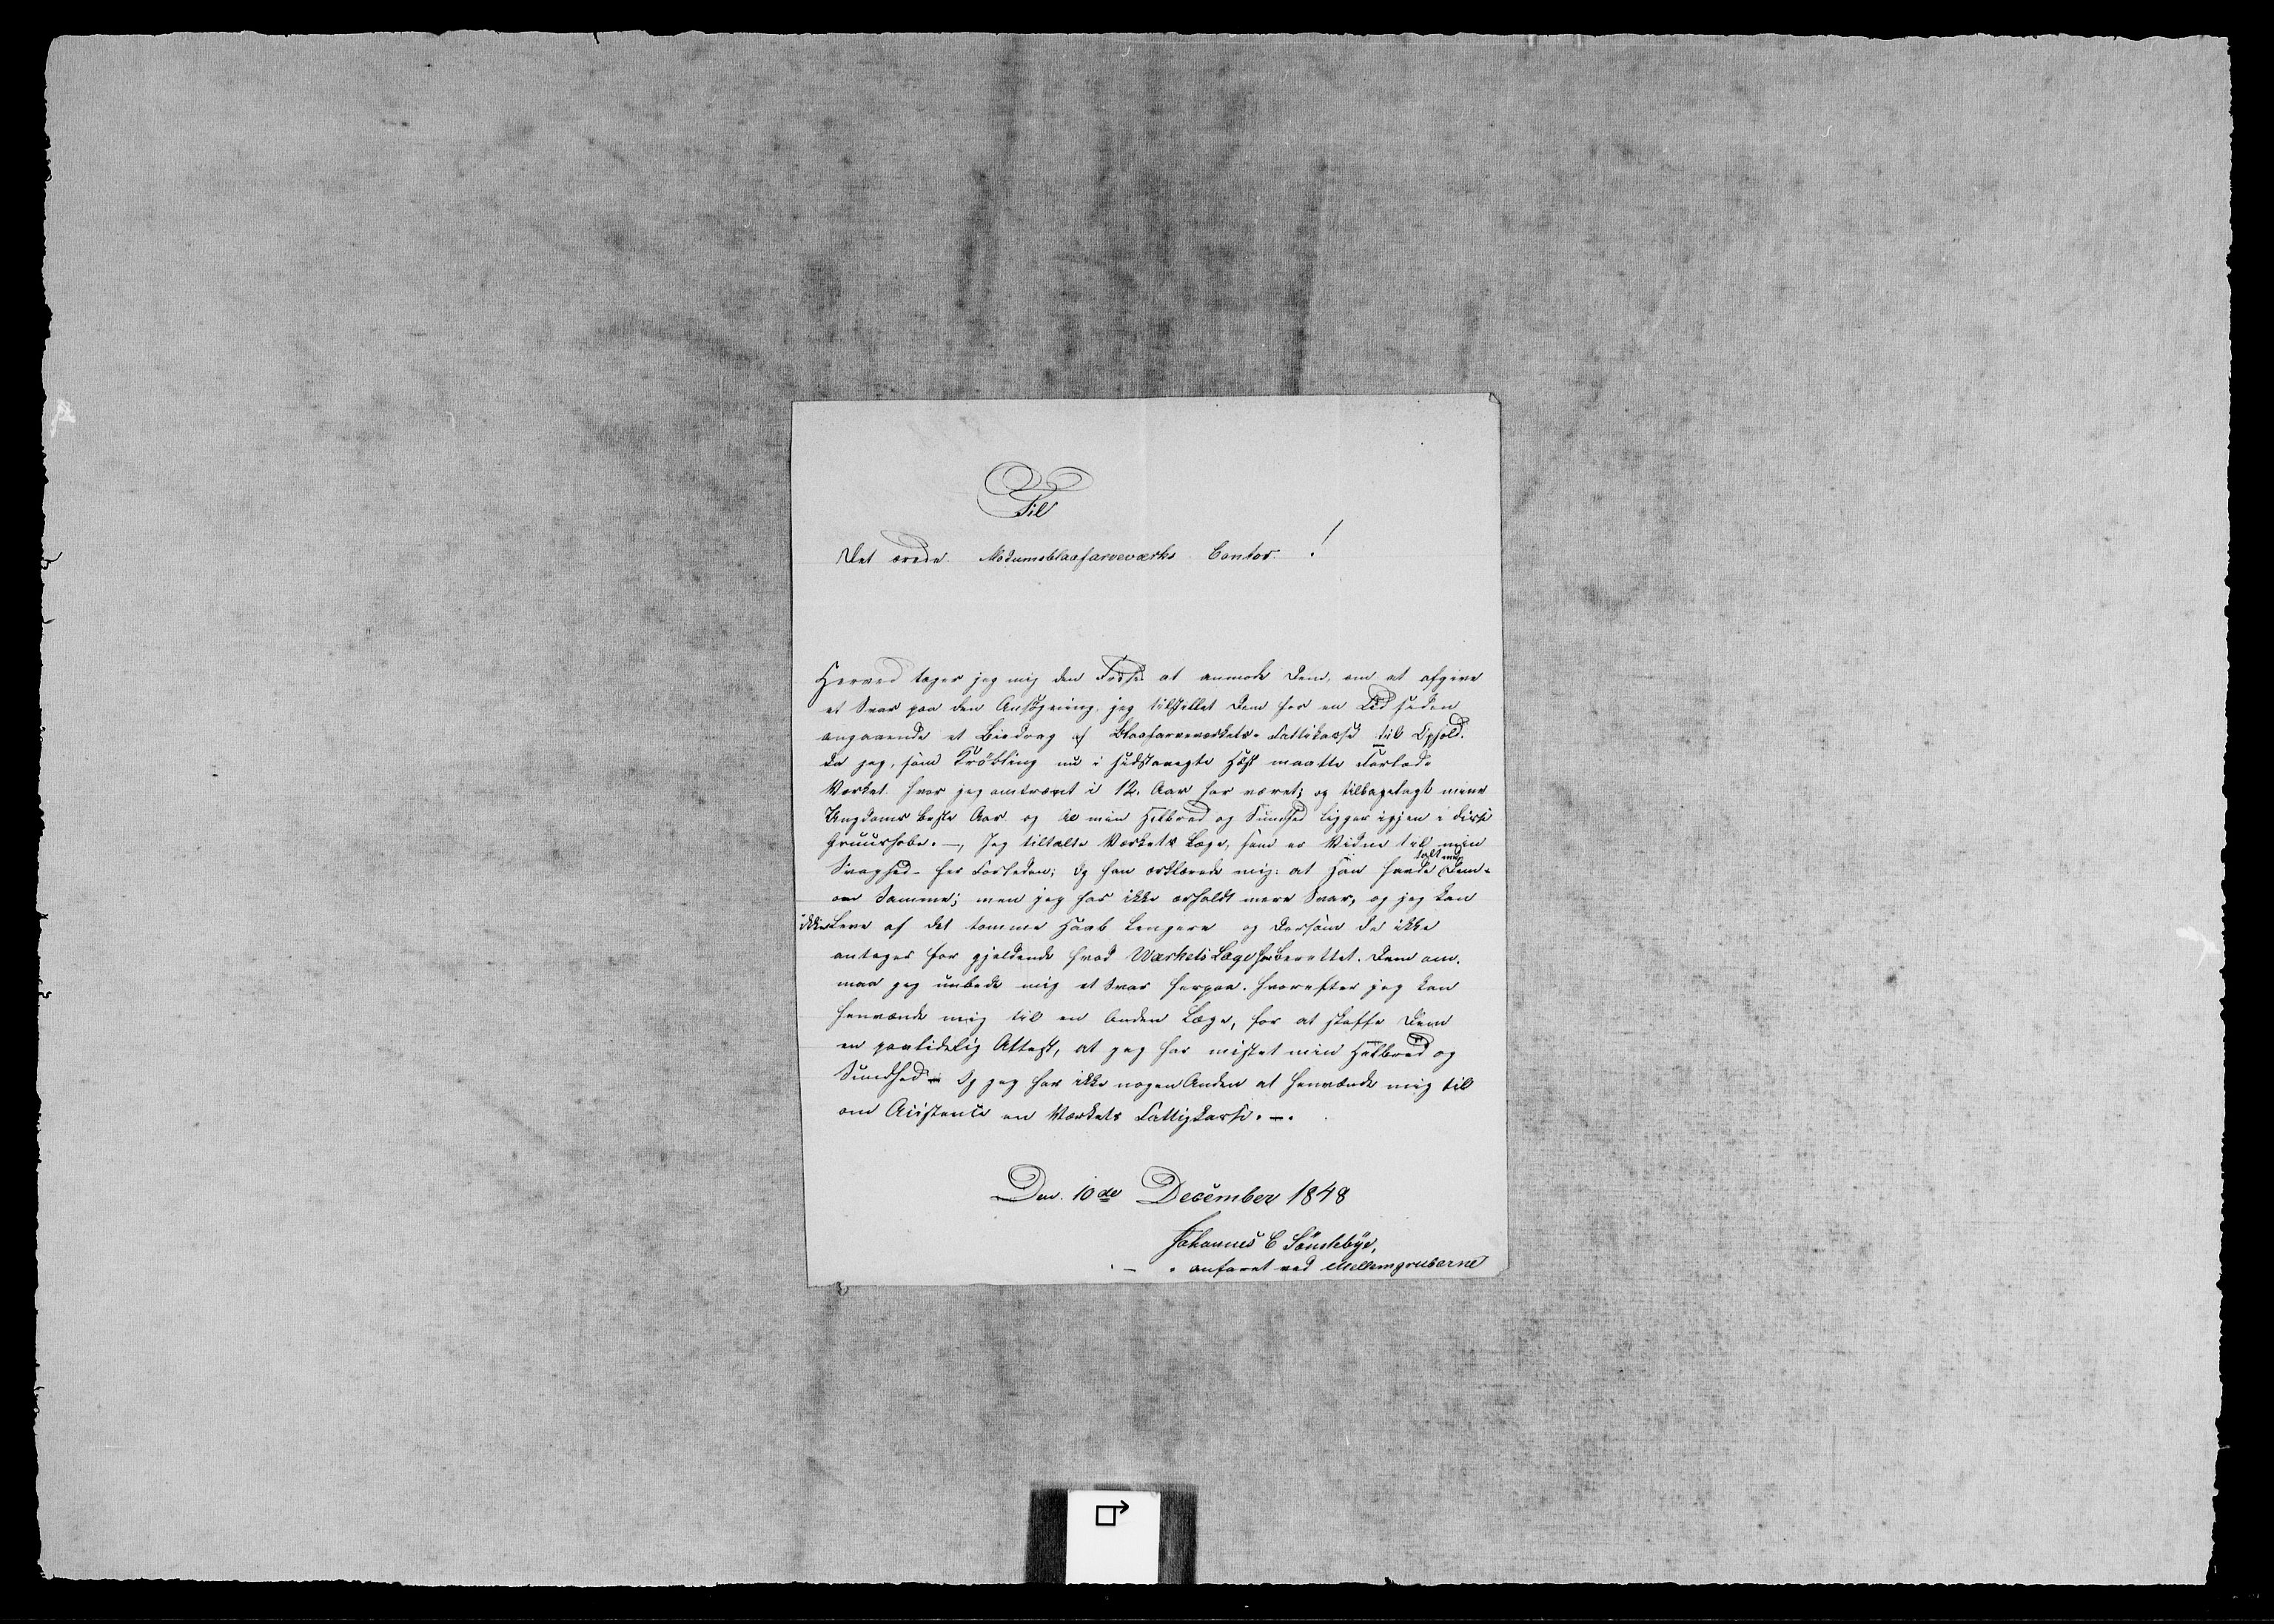 Til
Det ærede Modumsblaafarveværks Contor !
Herved tager jeg mig den at anmode Dem, om at afgive
et Svar paa den Ansøgning, jeg tilstillet Dem for en Tid siden
angaaende et Biedrag af Blaafarveværkets Fattikasse til Ophold.
da jeg, som Krøbling nu i sidstavegte Høst maatte Forlade
Værket. hvor jeg omtrænt i 12. Aar har været; og tilbagelagt mine
Ungdoms beste Aar og Al min Helbred og Sundhed ligger igjen i disse
Gruurhobe. —, Jeg tiltalte Værkets Læge, som er Vidne til min
Svaghed - her Forleden; Og han erklærede mig: at Han havde talt med Dem -
om Samme; men jeg har ikke erholdt mere Svar, og jeg kan
ikke Leve af det tomme Haab Lengere og Dersom de ikke
antages for gjeldende hvad Værkets Læge har Berettet. Dem om.
maa jeg udbede mig et Svar herpaa. hvorefter jeg kan
henvænde mig til en Anden Læge, for at skaffe Dem
en paalidelig Attest, at jeg har mistet min Helbred og
Sundhed - Og jeg har ikke nogen Anden at henvænde mig til
om Acistence en Værkets Fattigkasse. —.
Den. 10de December 1848
Johannes C Sønstebye,
anfaret ved Mellemgruberne